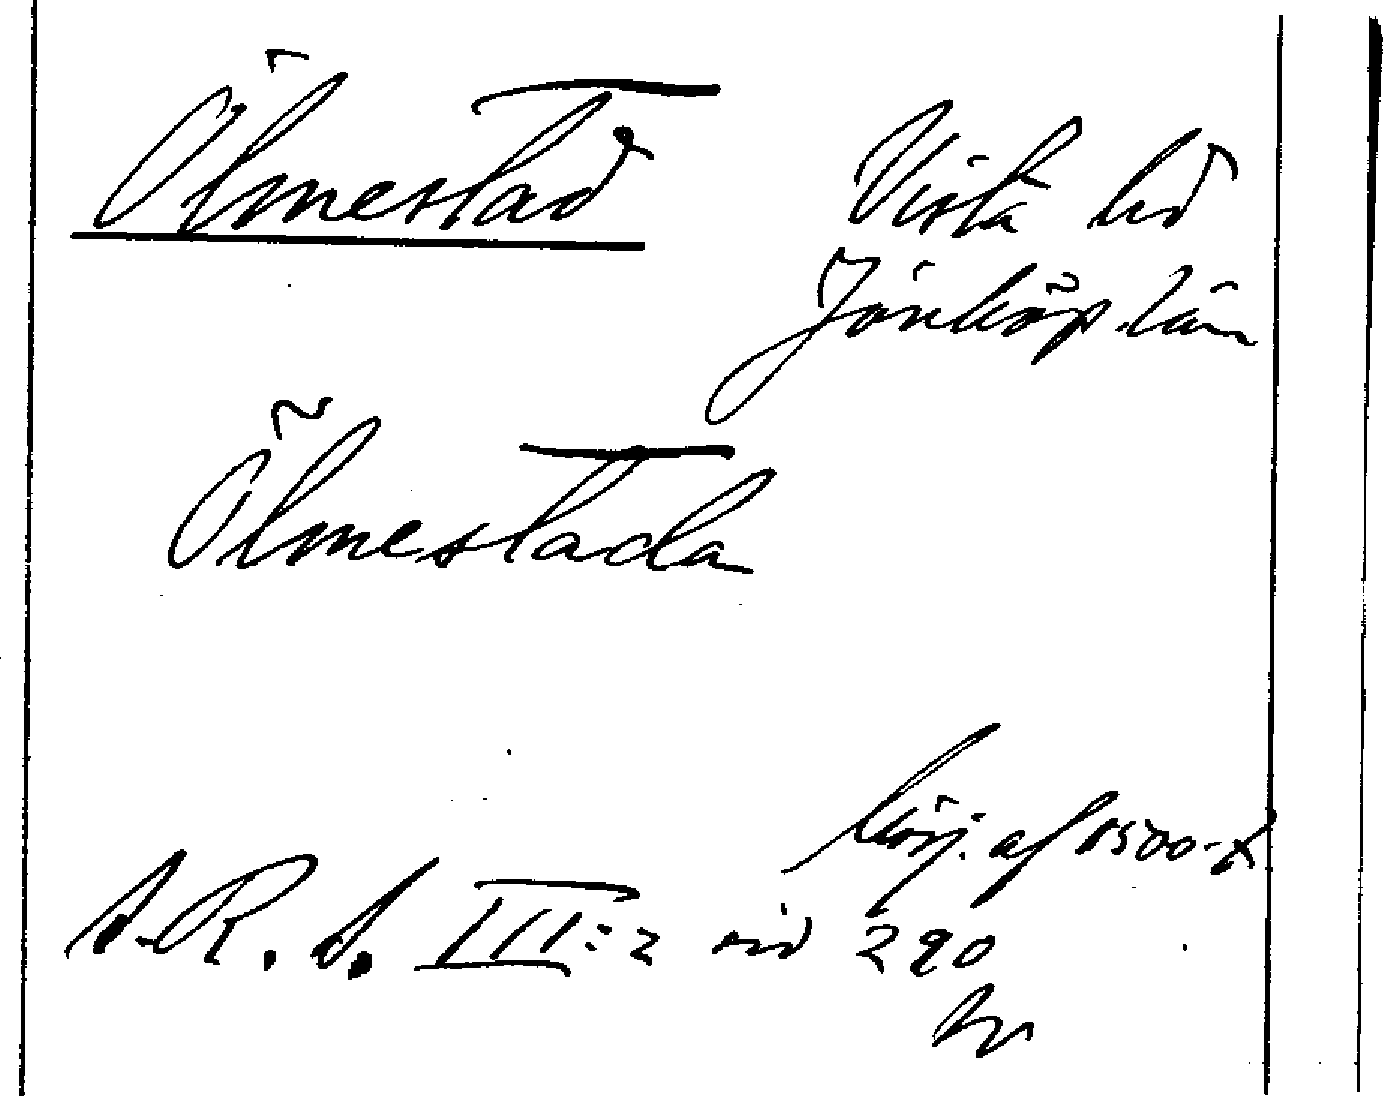 Ölmestad Vista hd
Jönköp. län
Ölmestada
börj. af 1500-t
S.R.S. III:2 sid 290